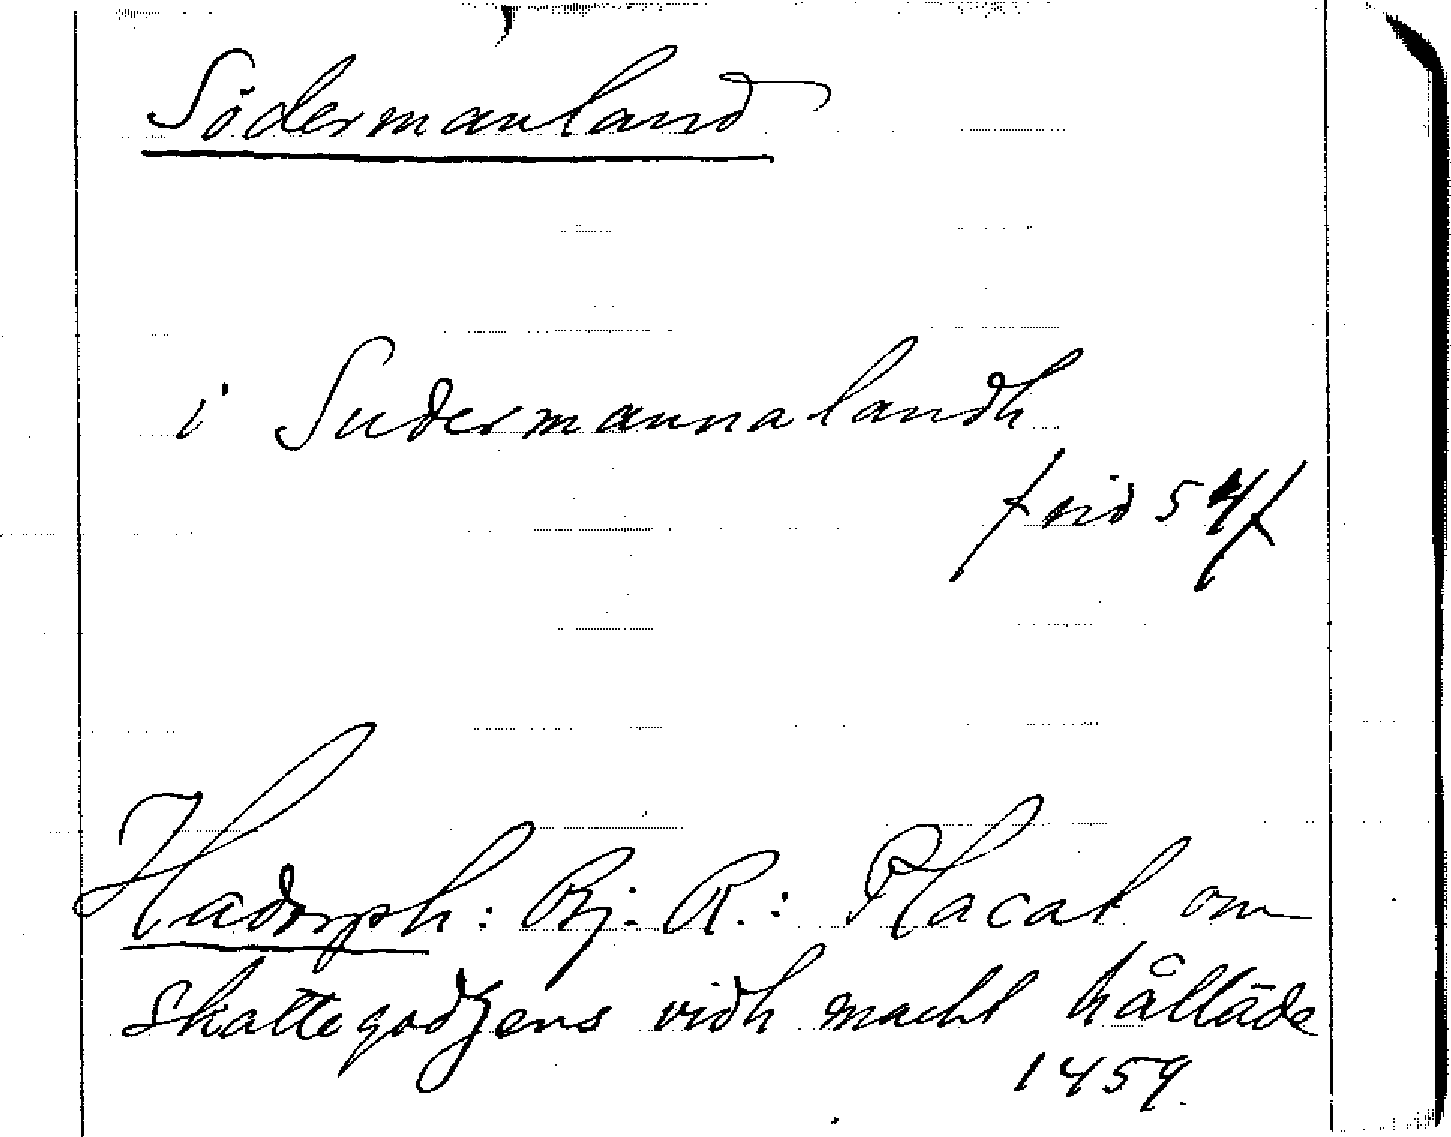 Södermanland
i Sudermannalandh
f sid 54 f
Hadorph: Bj. R.: Placat om
skattegodzens vidh macht hållāde
1459.